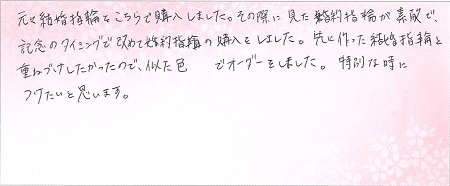 元々結婚指輪をこちらで購入しました。その際に見た婚約指輪が素敵で、
記念のタイミングで改めて婚約指輪の購入をしました。先に作った結婚指輪と
重ねづけしたかったので、似た色　　でオーダーをしました。特別な時に
つけたいと思います。